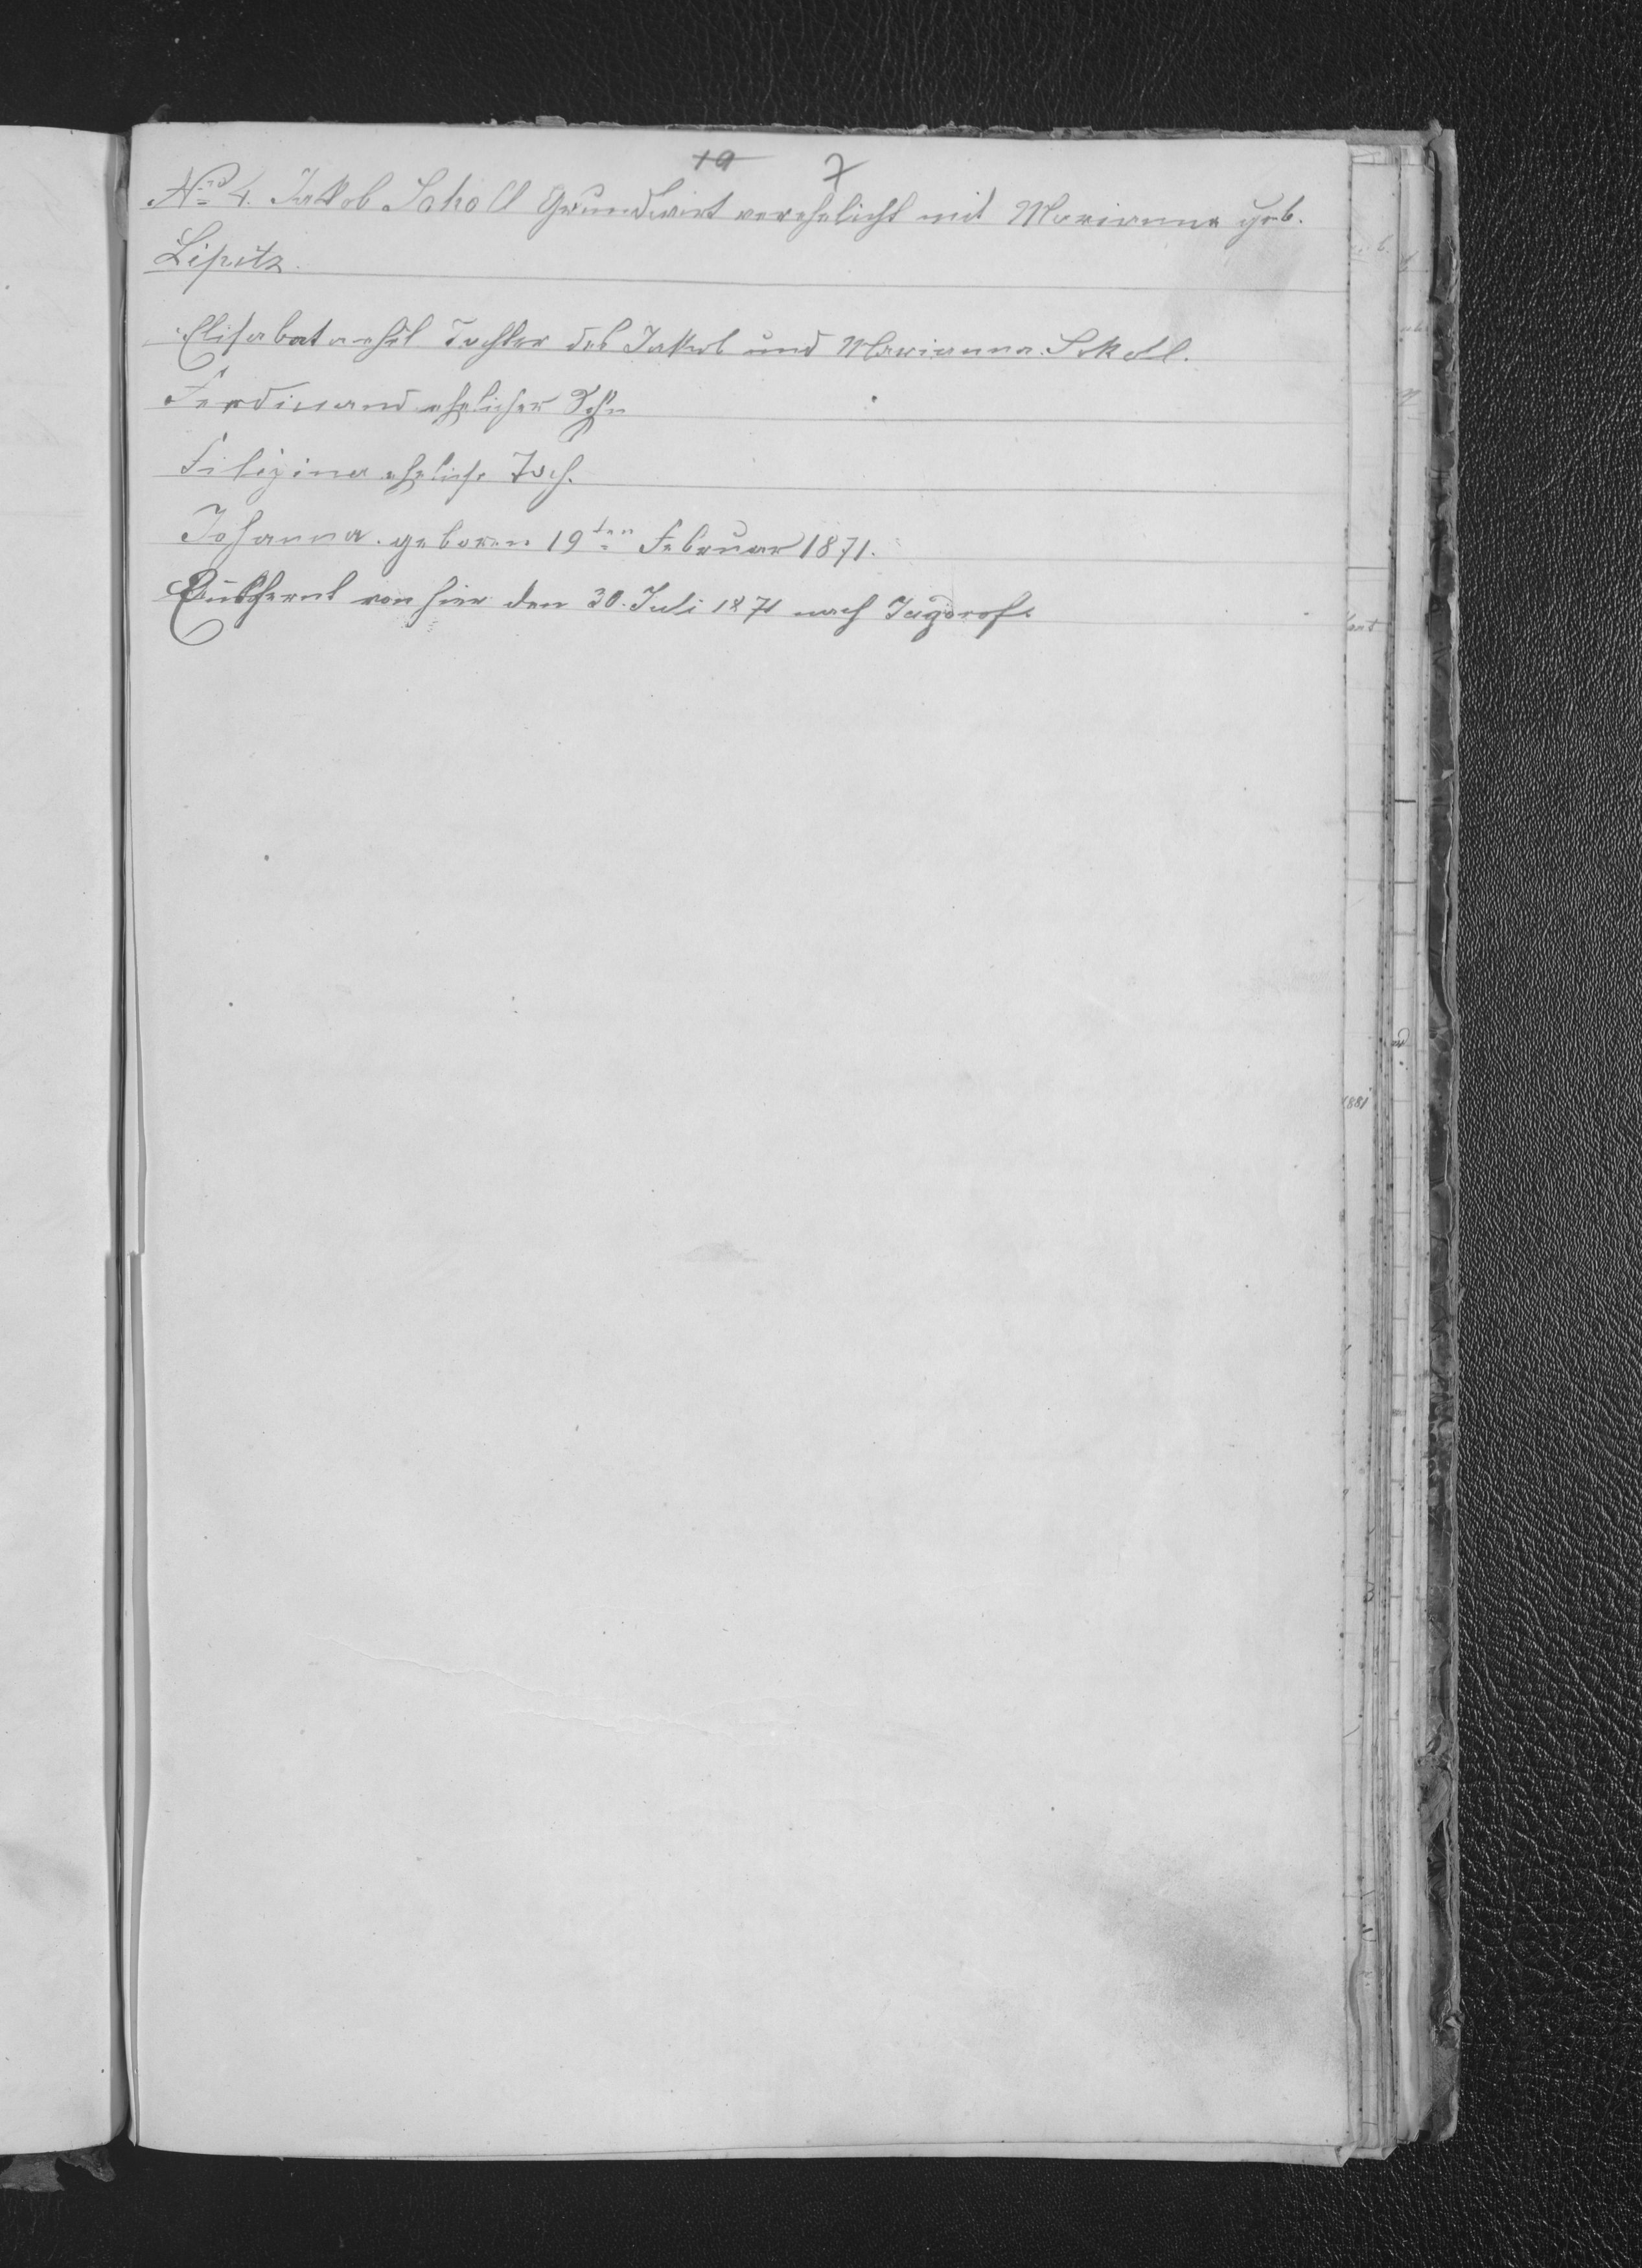 19 7
No 4. Jakob Sokoll Grundwirt verehelicht mit Marianna geb.
Lipitz.
Elisabat ehel Tochter des Jakob und Marianna Sokoll.
Ferdinand ehelicher Sohn
Filizina eheliche Toch.
Johanna geboren 19ten Februar 1871.
von hier den 30. Juli 1871 nach